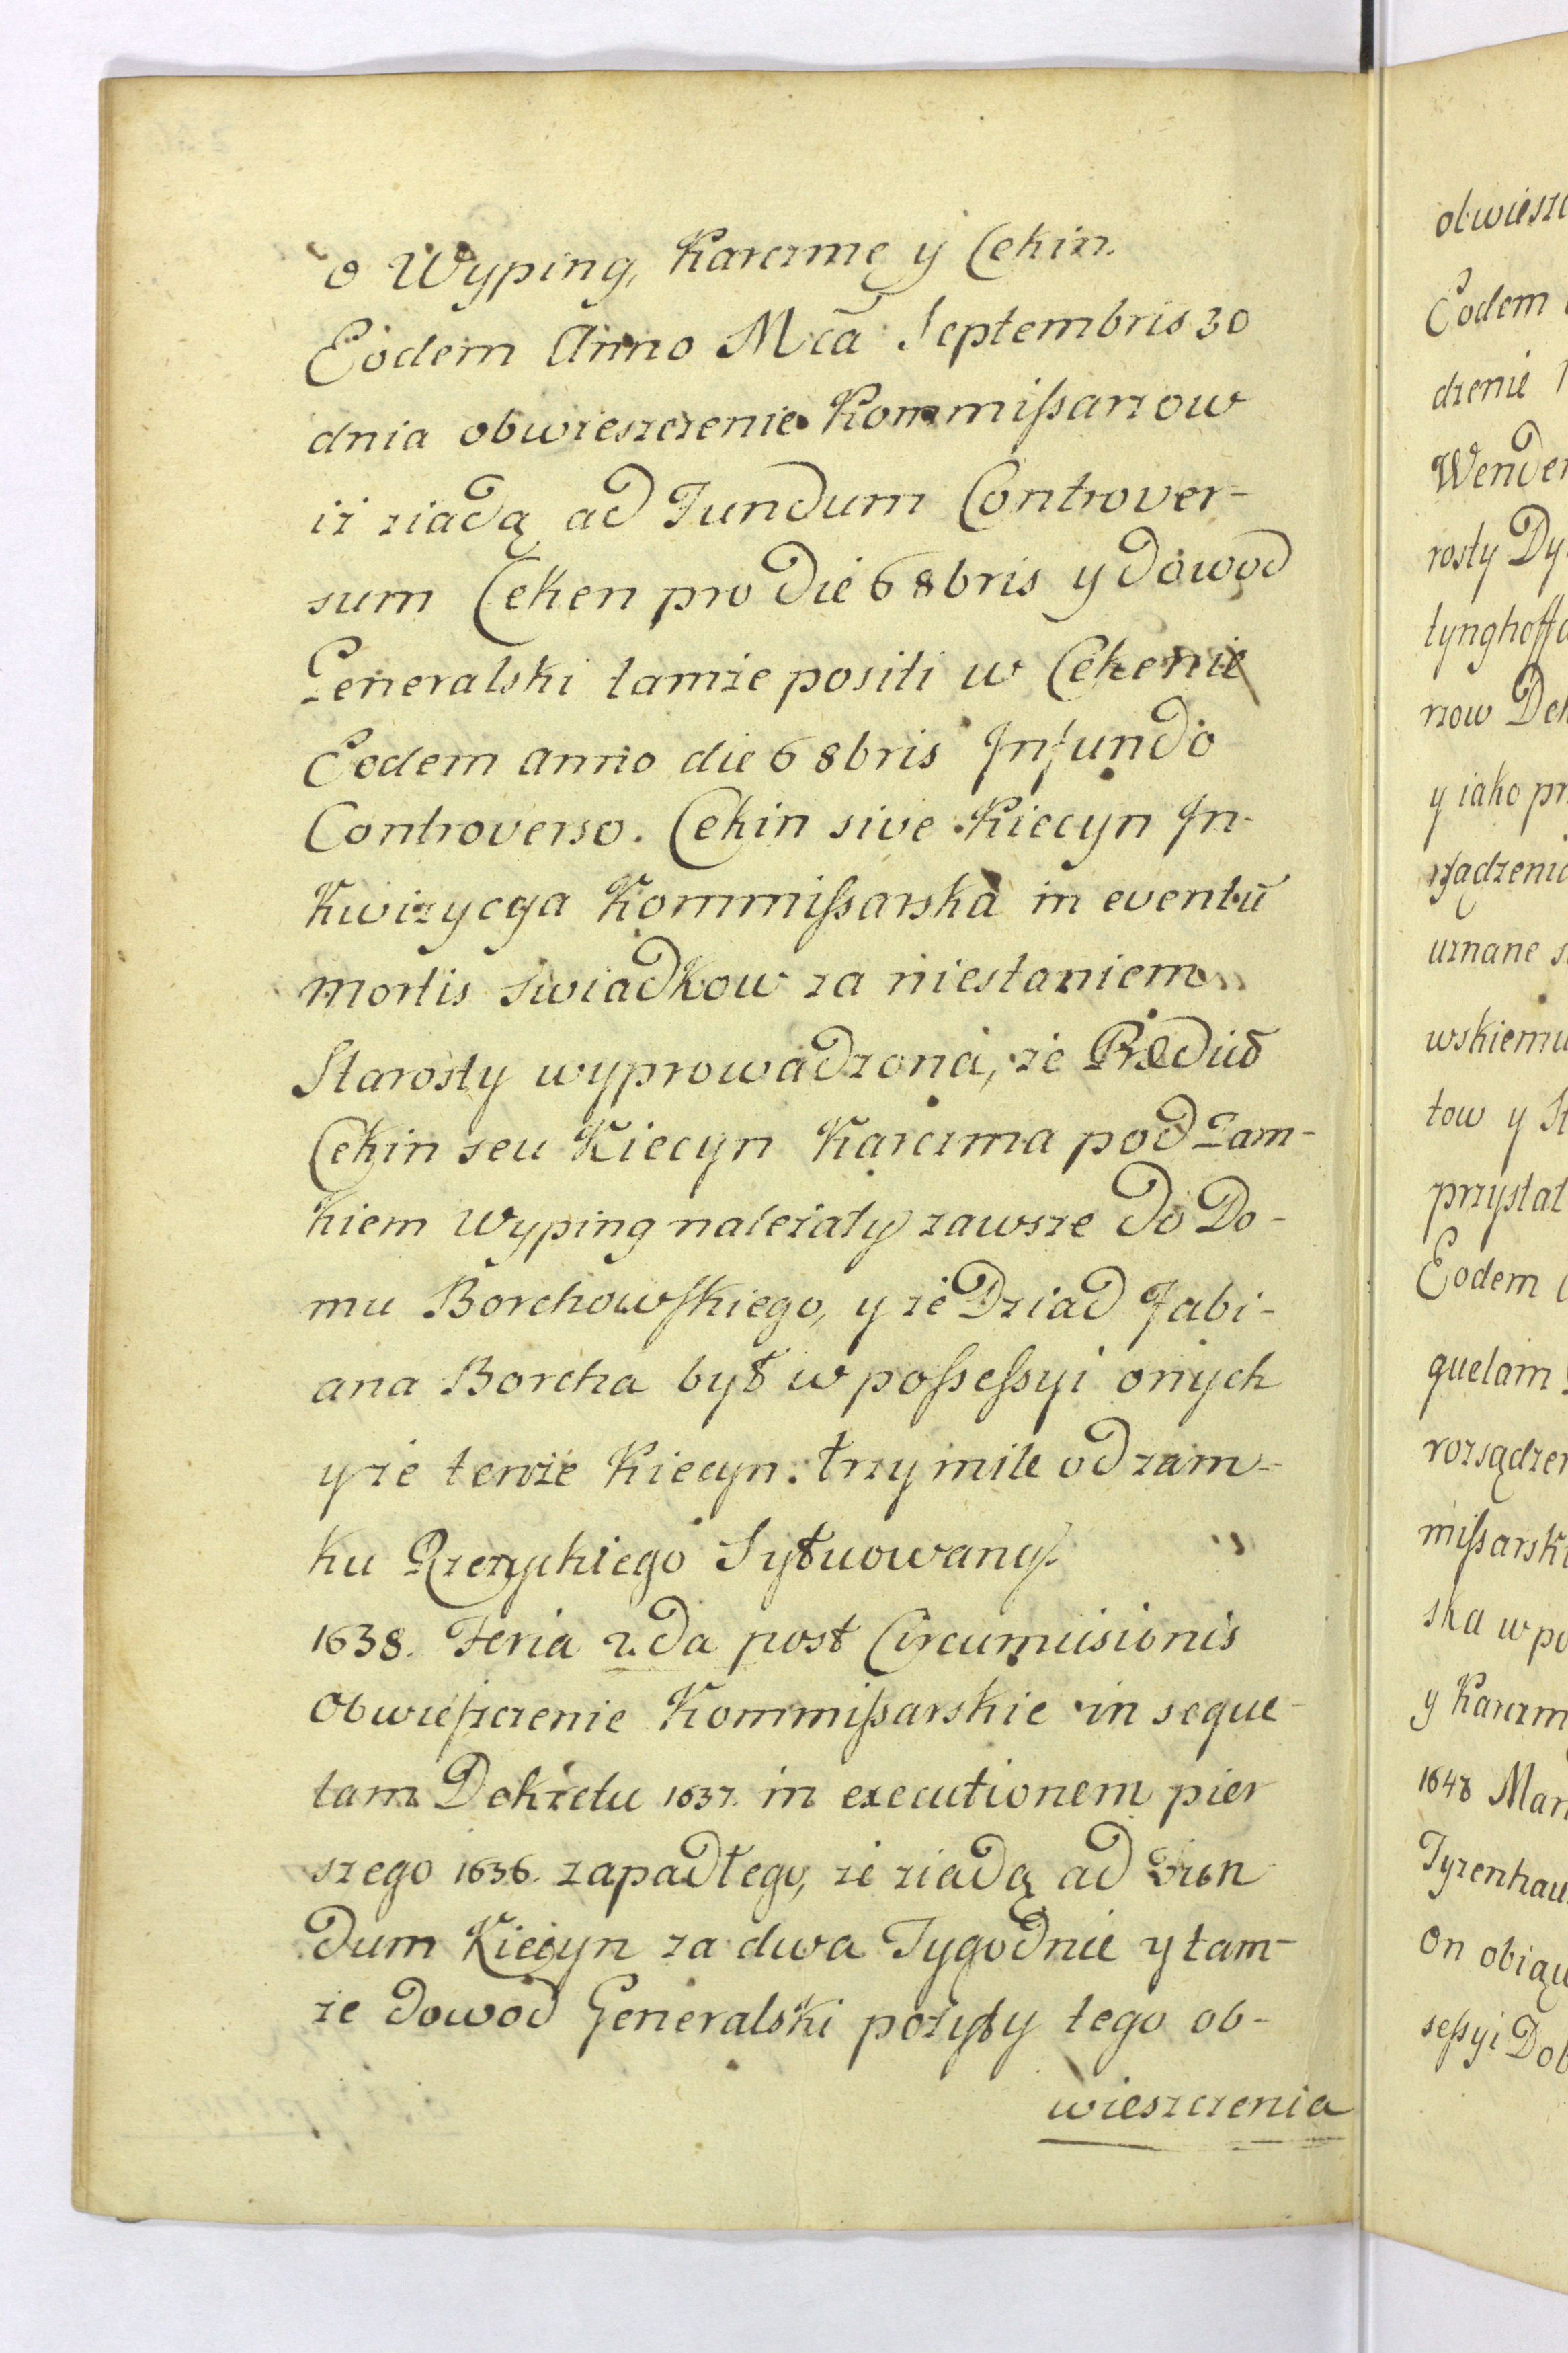 o Wyping, Karczmę y Cekin.
Eodem Anno Mcā Septembris 30
dnia obwieszczenie Kommißarzow
iż ziadą ad Fundum Controver-
sum Ceken pro die 6 8bris y dowod
Generalski tamże positi w Cekenie
Eodem anno die 6 8bris Infundo
Controverso. Cekin sive Kiecyn In-
kwizycya Kommißarska in eventū
mortis swiadkow za niestaniem
Starosty wyprowadzona, że Prædiū
Cekin seu Kiecyn Karczma pod Zam-
kiem Wyping należały zawsze do Do-
mu Borchowskiego, y że Dziad Fabi-
ana Borcha był w poßeßyi onych
y że tenże Kiecyn trzy mile od zam-
ku Rzezyckiego Sytuowany.
1638. Feria 2.da post Circumcisionis
Obwieszczenie Kommißarskie in seque-
lam Dekretu 1637. in executionem pier
szego 1636. zapadłego, że ziadą ad Fun
dum Kiecyn za dwa Tygodnie y tam-
że dowod Generalski położyły tego ob-
wieszczenia
obwieszc
Eodem
dzenie
Wenden
rosty Dy
tynghoffa
rzow Dek
y iako pr
sądzenia
uznane s
wskiemu
tow y St
przystał
Eodem
quelam
rozsądzen
mißarski
ska w po
y Karczm
1648 Mar
Tyzenhau
On obiąw
seßyi Dob